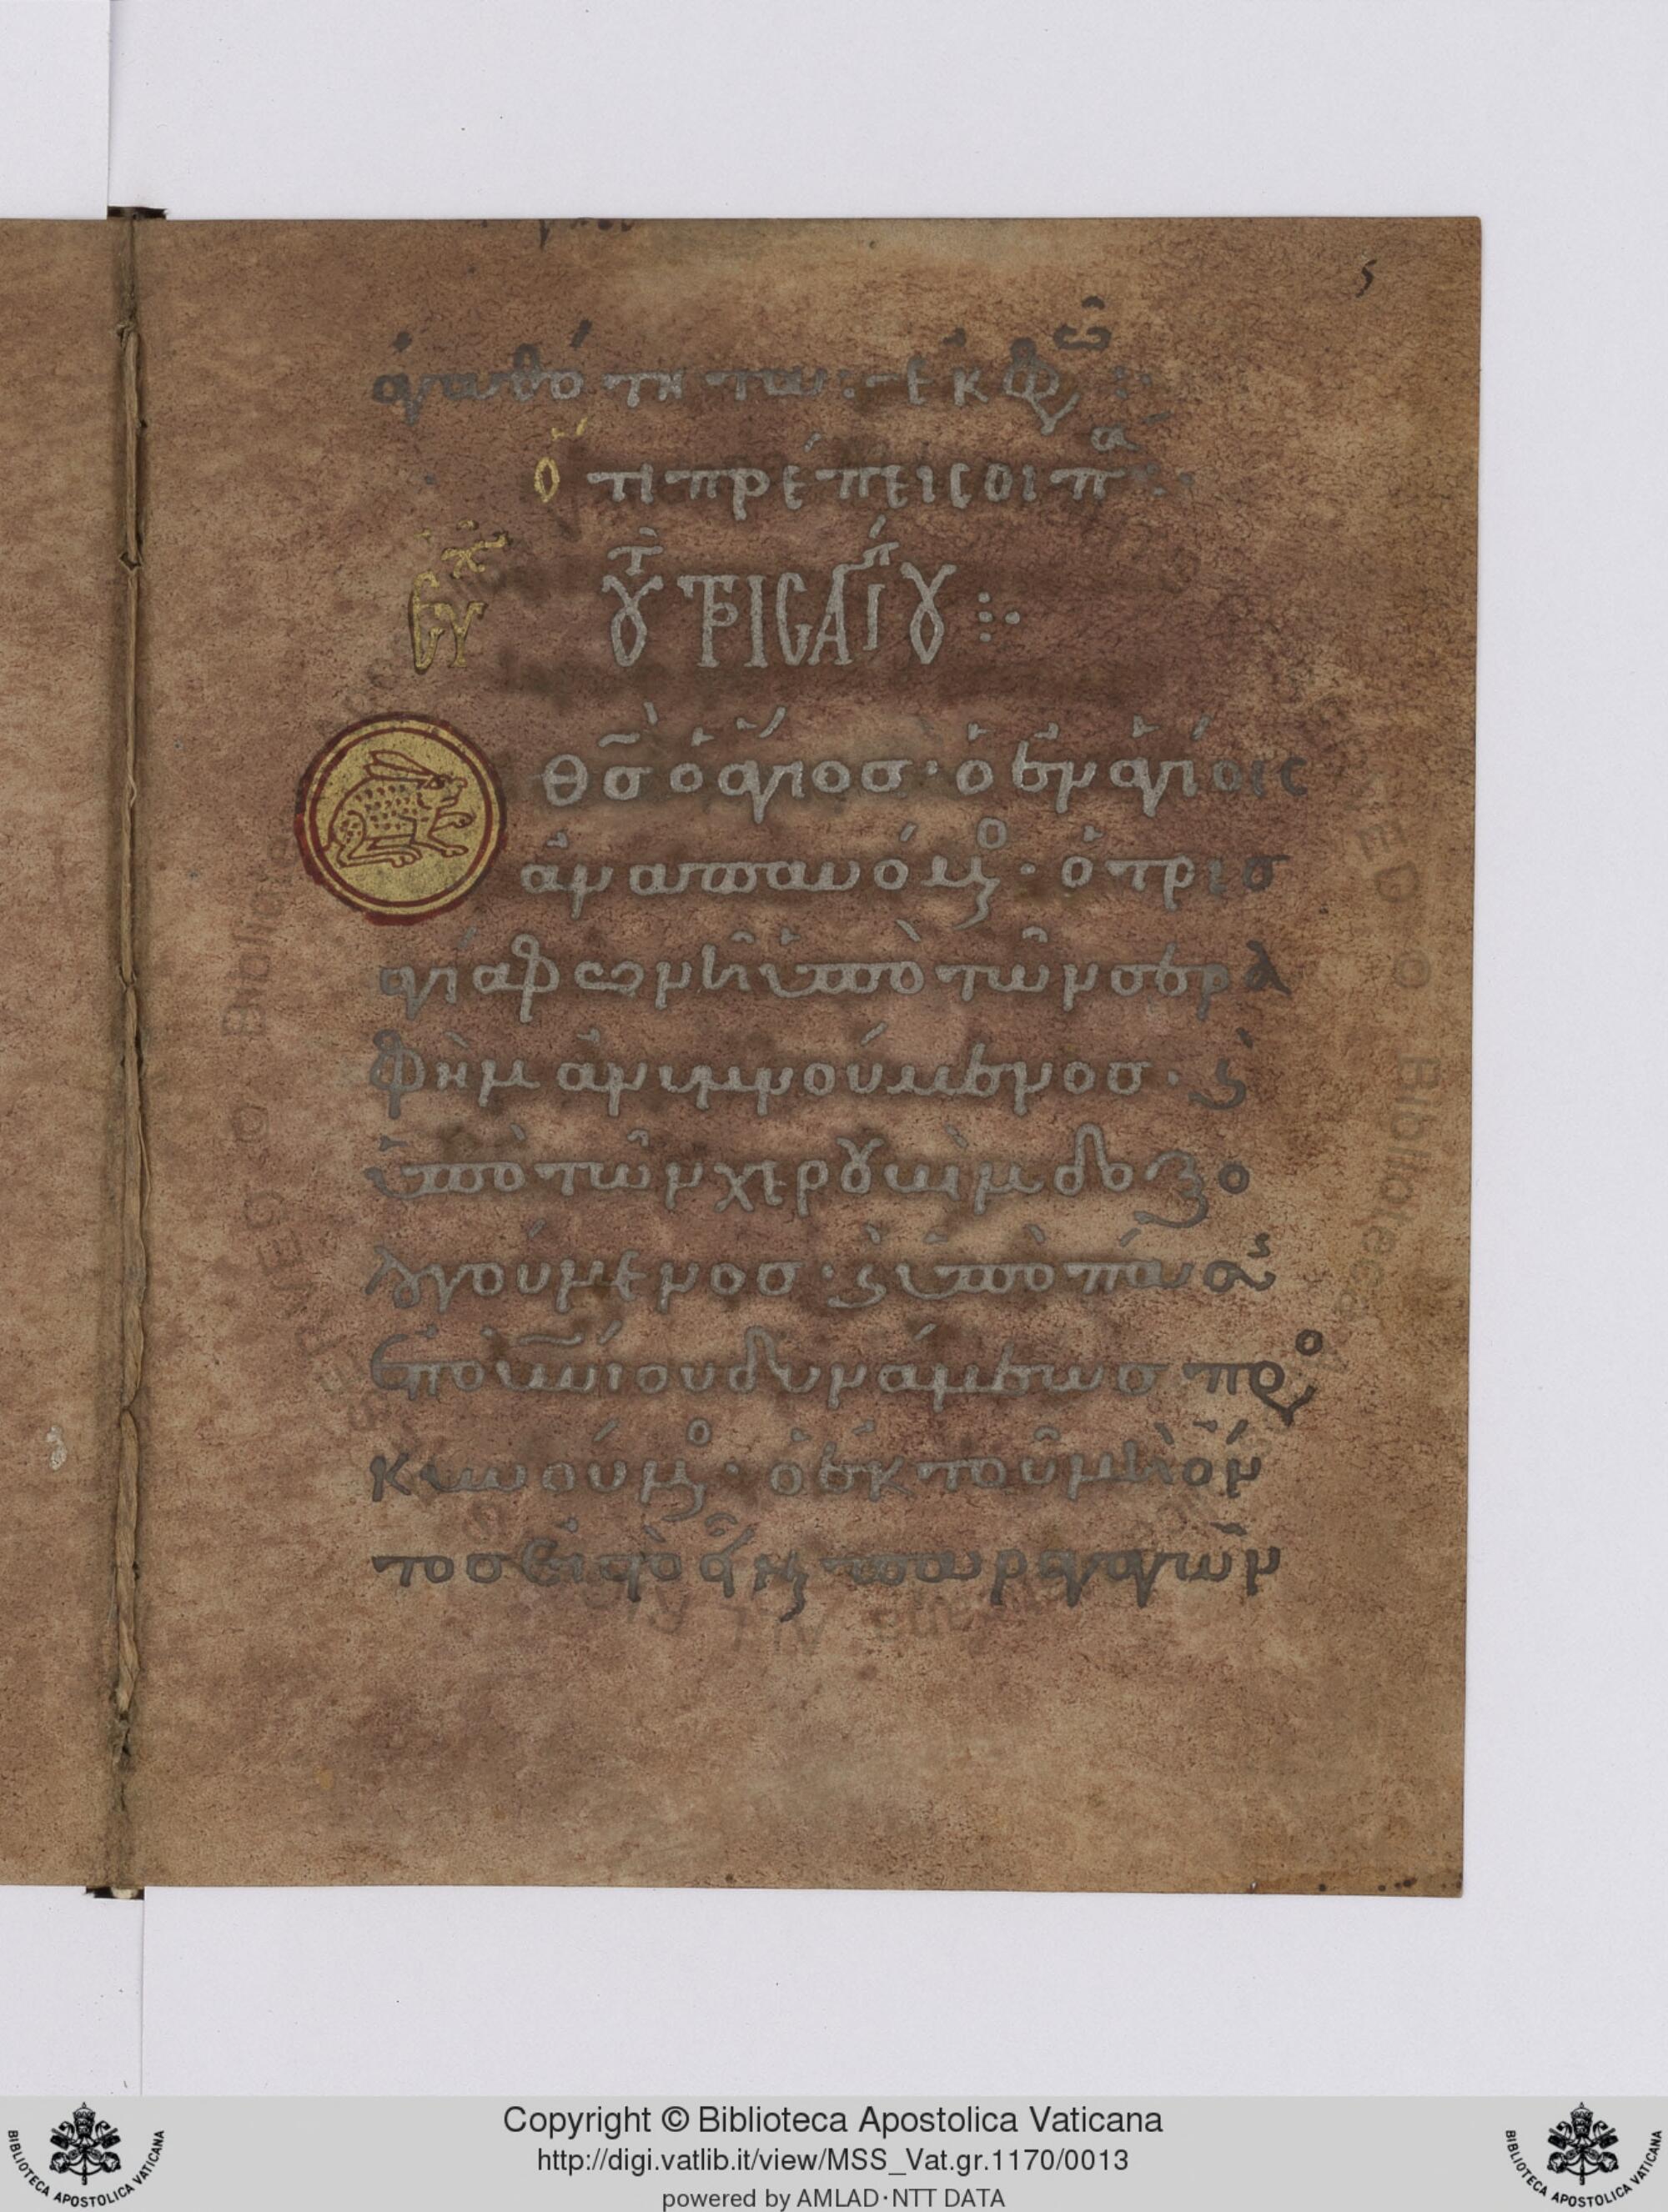 5
ἀγαθότητα:- ἐκφω
ὅτι πρέπει σοι πᾶ
Εὐχ τοῦ τρισαγίου
θσ ὁ ἅγιοσ· ὁ ἐν ἁγίοις
ἀναπαυόμενο· ὁ τρισ
αγία φωνῆ ὑπὸ τῶν σερα
φὴμ ἀνυμνούμενοσ· καὶ
ὑπὸ τῶν χερουβὶμ δοξο
λογούμενοσ· καὶ ὑπὸ πάσης
ἐπουνίου δυνάμεωσ προ
κυνούμενο· ὁ ἐκ τοῦ μὴ ὄν
τοσ εἰσ τὸ εἶναι παραγαγὼν
Copyright © Biblioteca Apostolica Vaticana
http://digi.vatlib.it/view/MSS_Vat.gr.1170/0013
powered by AMLAD·NTT DATA
BIBLIOTECA APOSTOLICA VATICANA
BIBLIOTECA APOSTOLICA VATICANA